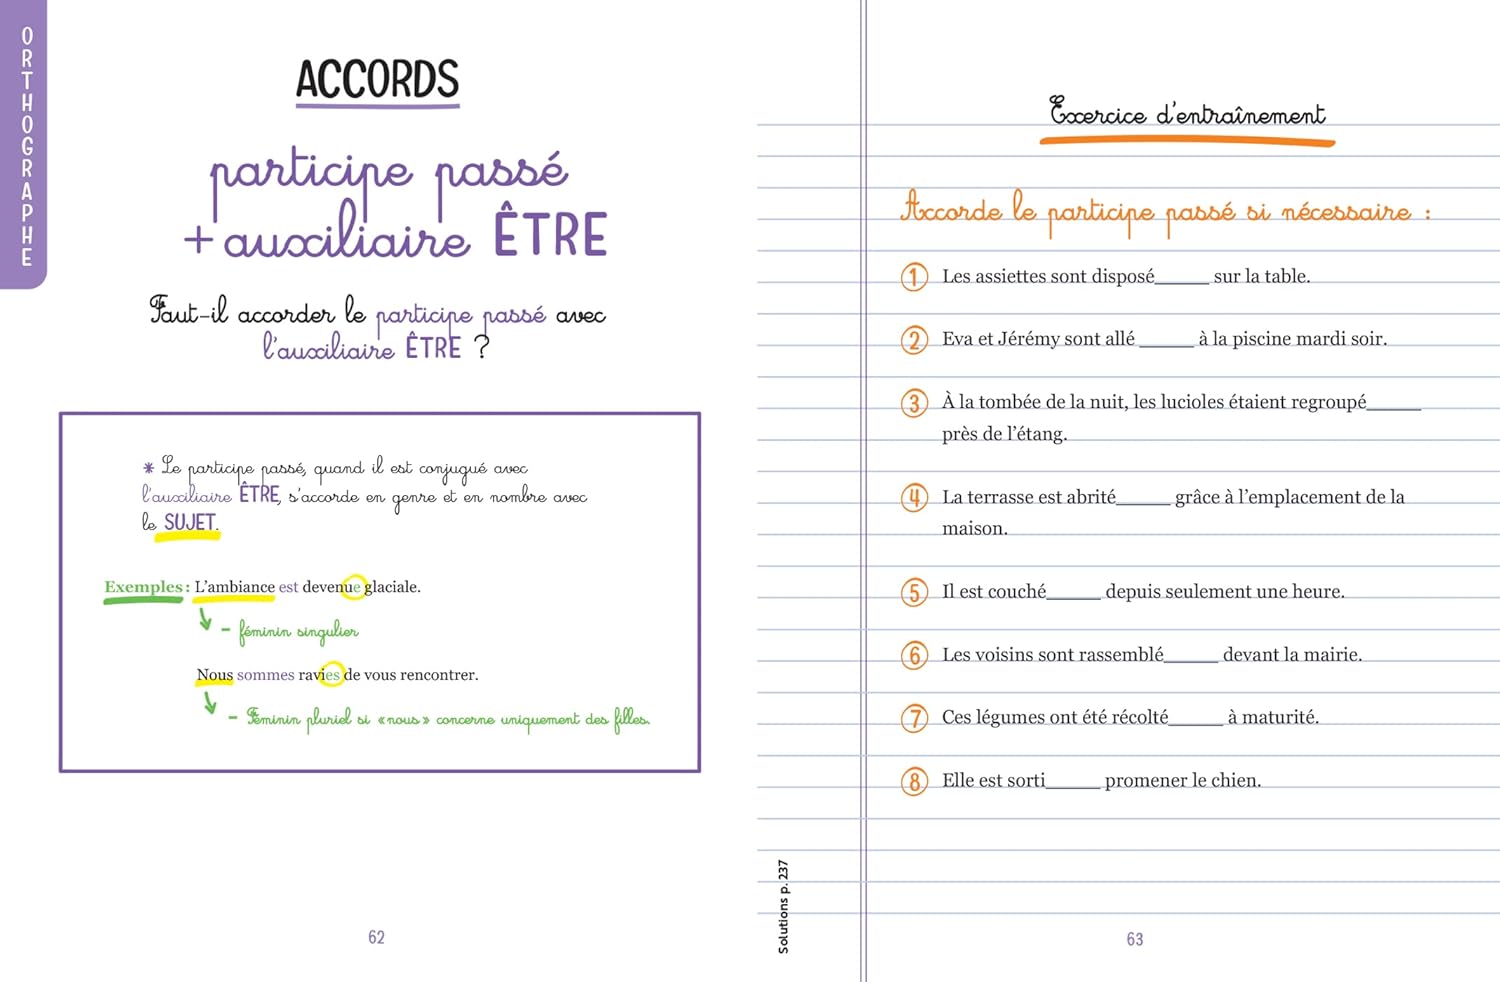 ORTHOGRAPHE
ACCORDS
participe passé
+ auxiliaire ÊTRE
Faut-il accorder le participe passé avec
l'auxiliaire ÊTRE ?
* Le participe passé, quand il est conjugué avec
l'auxiliaire ÊTRE, s'accorde en genre et en nombre avec
le SUJET.
Exemples : L'ambiance est devenue glaciale.
- féminin singulier
Nous sommes ravies de vous rencontrer.
- Féminin pluriel si « nous » concerne uniquement des filles.
62
Exercice d'entraînement
Accorde le participe passé si nécessaire :
1 Les assiettes sont disposé______ sur la table.
2 Eva et Jérémy sont allé ______ à la piscine mardi soir.
3 À la tombée de la nuit, les lucioles étaient regroupé______
près de l'étang.
4 La terrasse est abrité______ grâce à l'emplacement de la
maison.
5 Il est couché______ depuis seulement une heure.
6 Les voisins sont rassemblé______ devant la mairie.
7 Ces légumes ont été récolté______ à maturité.
8 Elle est sorti______ promener le chien.
Solutions p. 237
63